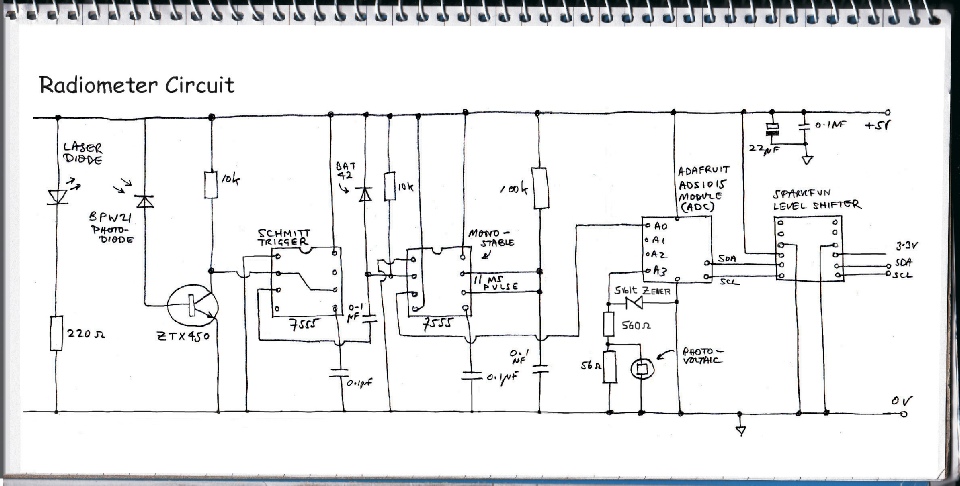 Radiometer Circuit
LASER
DIODE
BPW21
PHOTO-
DIODE
220Ω
10k
ZTX450
SCHMITT
TRIGGER
7555
0.1µF
BAT
42
10k
0.1
µF
MONO-
STABLE
11 MS
PULSE
7555
0.1µF
100k
0.1
µF
ADAFRUIT
ADS1015
MODULE
(ADC)
A0
A1
A2
A3
SDA
SCL
5V1 ZENER
560Ω
56Ω
PHOTO-
VOLTAIC
22µF
0.1µF
+5V
SPARKFUN
LEVEL SHIFTER
3.3V
SDA
SCL
0V